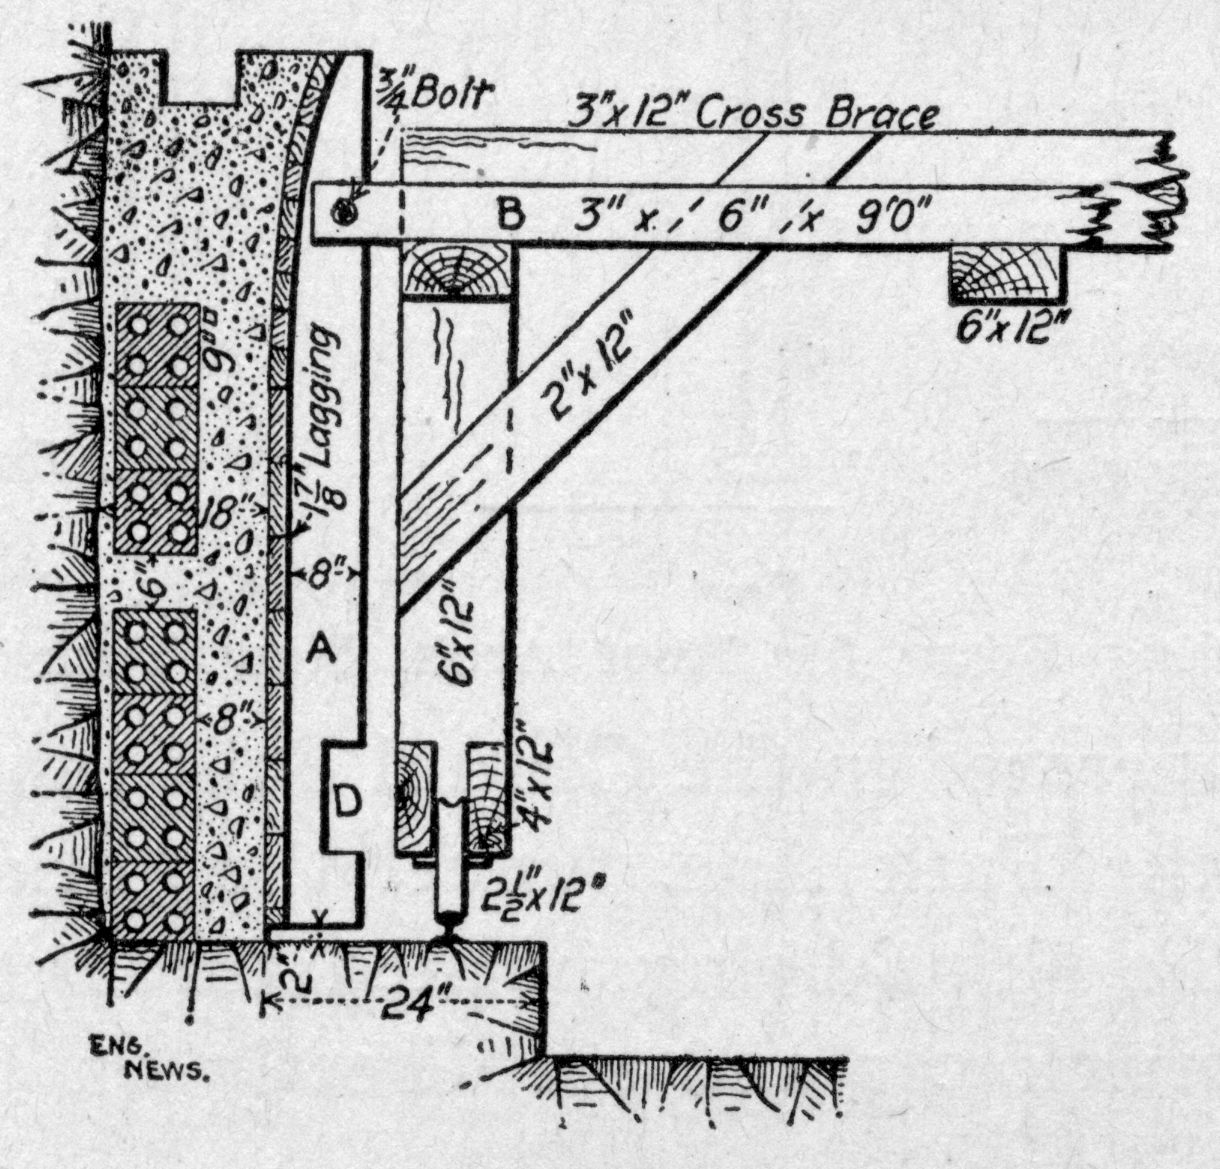 3/4" Bolt
3"x12" Cross Brace
B 3" x 6" x 9'0"
6"x12"
2"x12"
9"
1 7/8" Lagging
18"
8"
6"
A
6"x12"
8"
D
4"x12"
2 1/2"x12"
2"
24"
ENG.
NEWS.